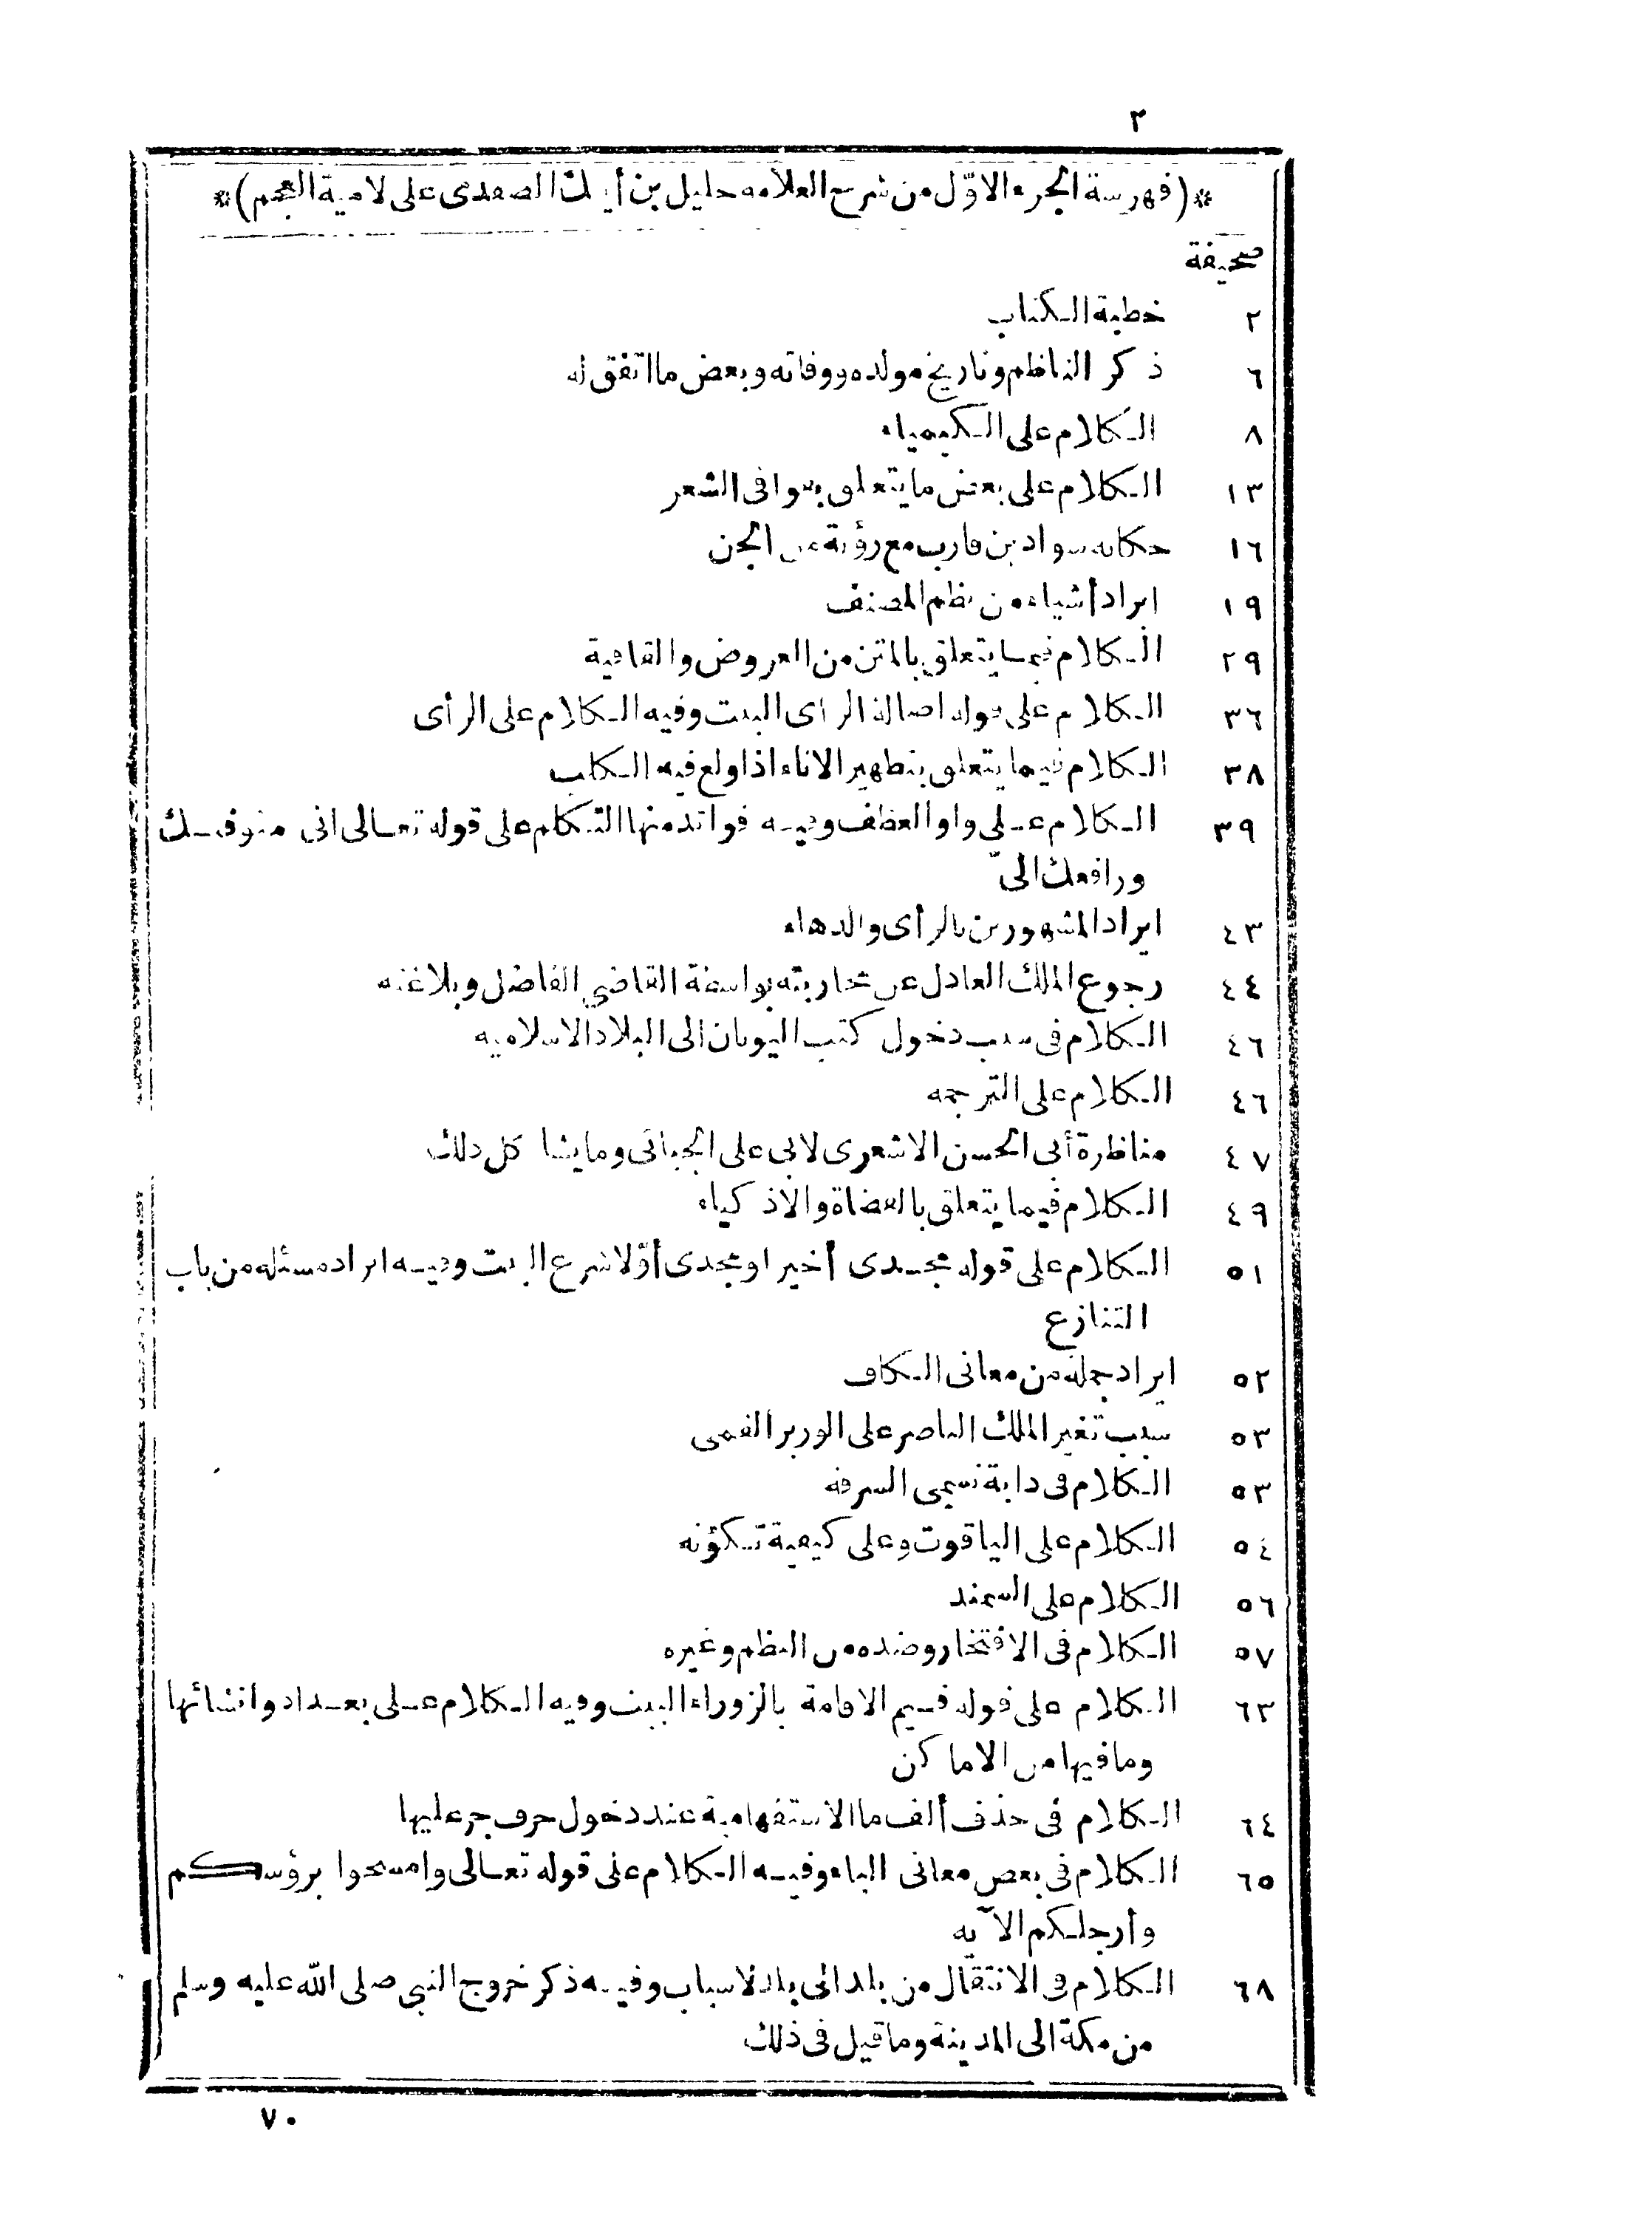 ٣
*(فهرسة الجزء الاوّل من شرح العلامة خليل بن أيبك الصفدى على لامية العجم)*
صحيفة
٢ خطبة الكتاب
٦ ذكر الناظم وتاريخ مولده ووفاته وبعض ما اتفق له
٨ الكلام على الكيمياء
١٣ الكلام على بعض ما يتعلق بقوافى الشعر
١٦ حكاية سواد بن قارب مع رؤيته من الجن
١٩ ايراد أشياء من نظم المصنف
٢٩ الكلام فيما يتعلق بالمتن من العروض والقافية
٣٦ الكلام على قوله اصالة الرأى البيت وفيه الكلام على الرأى
٣٨ الكلام فيما يتعلق بتطهير الاناء اذا ولغ فيه الكلب
٣٩ الكلام على واو العطف وفيه فوائد منها التكلم على قوله تعالى انى متوفيك
ورافعك الىّ
٤٣ ايراد المشهورين بالرأى والدهاء
٤٤ رجوع الملك العادل عن محاربته بواسطة القاضى الفاضل وبلاغته
٤٦ الكلام فى سبب دخول كتب اليونان الى البلاد الاسلامية
٤٦ الكلام على الترجمة
٤٧ مناظرة أبى الحسن الاشعرى لابى على الجبائى وما يشاكل ذلك
٤٩ الكلام فيما يتعلق بالقضاة والاذكياء
٥١ الكلام على قوله مجدى أخيرا ومجدى أوّلا شرع البيت وفيه ايراد مسئلة من باب
التنازع
٥٢ ايراد جملة من معانى الكاف
٥٣ سبب تغير الملك الناصر على الوزير القمى
٥٣ الكلام فى دابة تسمى السرفة
٥٤ الكلام على الياقوت وعلى كيفية تكوّنه
٥٦ الكلام على السمند
٥٧ الكلام فى الافتخار وضده من النظم وغيره
٦٣ الكلام على قوله فيم الاقامة بالزوراء البيت وفيه الكلام على بغداد وانشائها
وما فيها من الاماكن
٦٤ الكلام فى حذف ألف ما الاستفهامية عند دخول حرف جر عليها
٦٥ الكلام فى بعض معانى الباء وفيه الكلام على قوله تعالى وامسحوا برؤسكم
وأرجلكم الآية
٦٨ الكلام فى الانتقال من بلد الى بلد لاسباب وفيه ذكر خروج النبى صلى الله عليه وسلم
من مكة الى المدينة وما قيل فى ذلك
٧٠